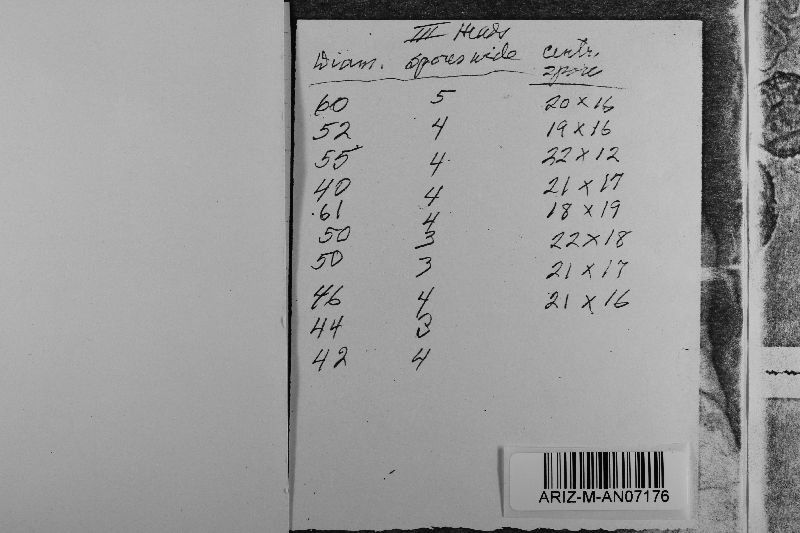 III Heads
Diam. spores wide centr. spore
60 5 20 x 16
52 4 19 x 16
55 4 22 x 12
40 4 21 x 17
61 4 18 x 19
50 3 22 x 18
50 3 21 x 17
46 4 21 x 16
44 3
42 4
ARIZ-M-AN07176